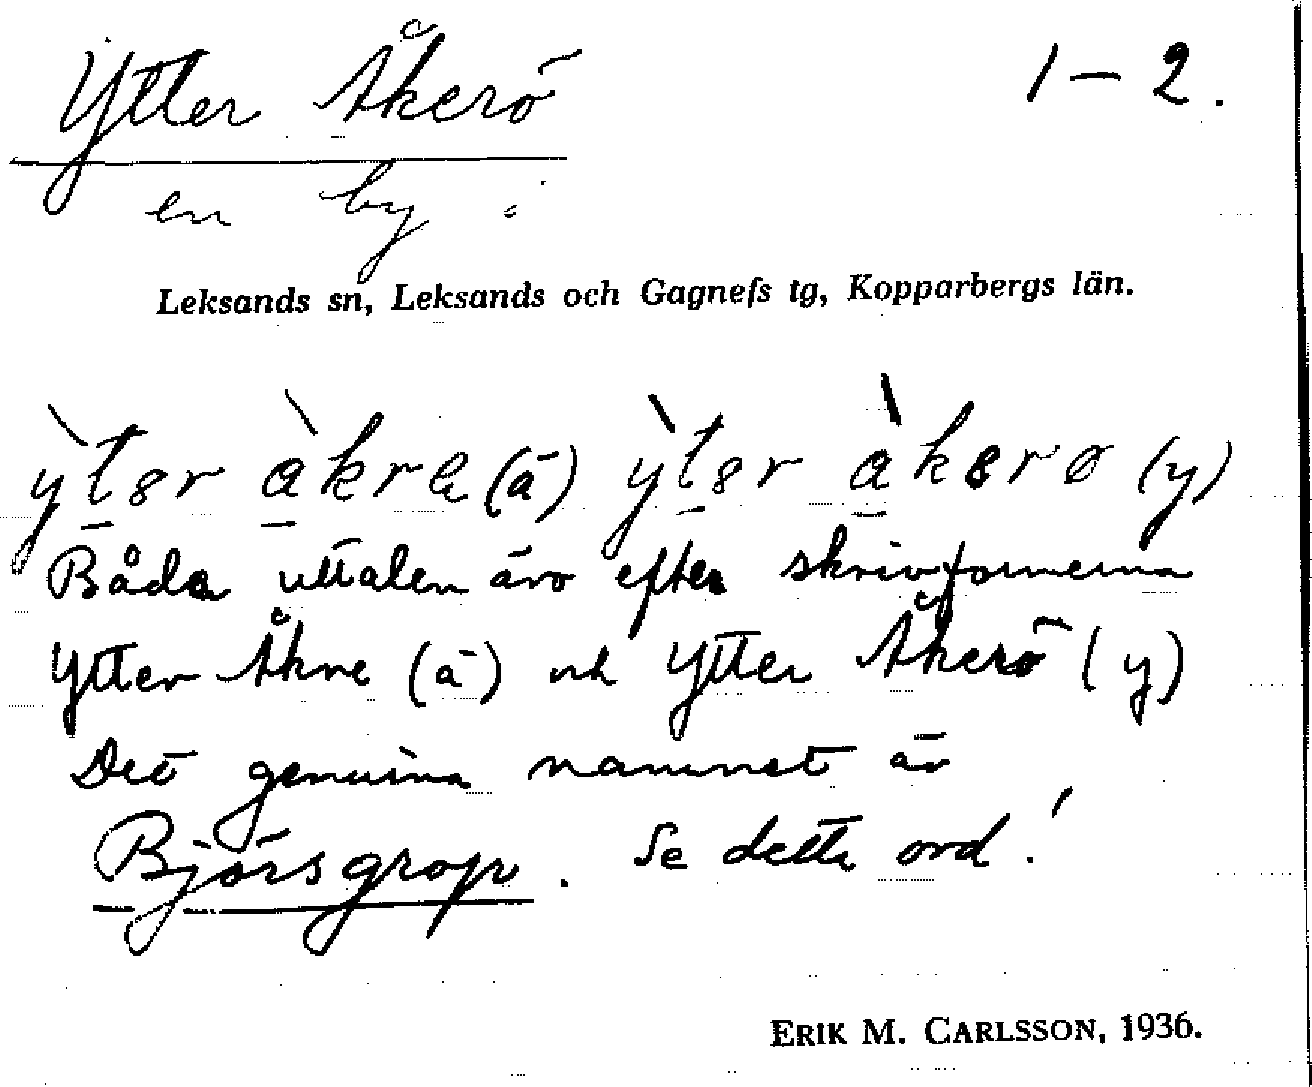 Ytter Åkerö 1–2.
en by i
Leksands sn, Leksands och Gagnefs tg, Kopparbergs län.
ỳtər àkrɐ (ä) ỳtər àkərø (y)
Båda uttalen äro efter skrivformerna
Ytter Åkre (ä) och Ytter Åkerö (y)
Det genuina namnet är
Björsgrop. Se detta ord!
ERIK M. CARLSSON, 1936.